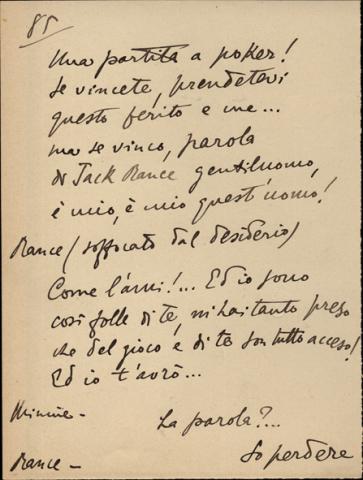 85
Una partita a poker!
Se vincete, prendetevi
questo ferito e me...
ma se vinco, parola
di Jack Rance gentiluomo,
è mio, è mio quest'uomo!
Rance (soffocato dal desiderio)
Come l'ami!... Ed io sono
così folle di te, mi hai tanto preso
che del gioco e di te son tutto acceso!
Ed io t'avrò...
Minnie - La parola?...
Rance - So perdere